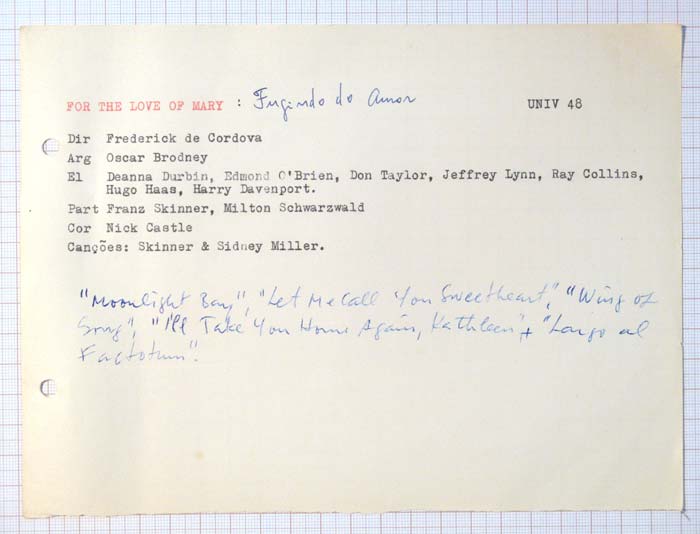 FOR THE LOVE OF MARY : Fugindo do Amor UNIV 48
Dir Frederick de Cordova
Arg Oscar Brodney
El Deanna Durbin, Edmond O'Brien, Don Taylor, Jeffrey Lynn, Ray Collins,
Hugo Haas, Harry Davenport.
Part Franz Skinner, Milton Schwarzwald
Cor Nick Castle
Canções: Skinner & Sidney Miller.
"Moonlight Bay", "Let Me Call You Sweetheart", "Wing of
Song", "I'll Take You Home Again, Kathleen", + "Largo al
Factotum".